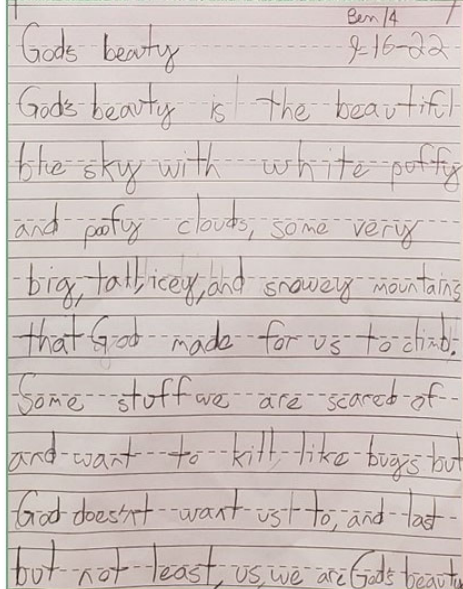 Ben/4
God's beauty 9-16-22
God's beauty is the beautiful
blue sky with white puffy
and poofy clouds, some very
big, tall, icey, and snowey mountains
that God made for us to climb.
Some stuff we are scared of
and want to kill like bugs but
God doesn't want us to, and last
but not least, us, we are God's beauty